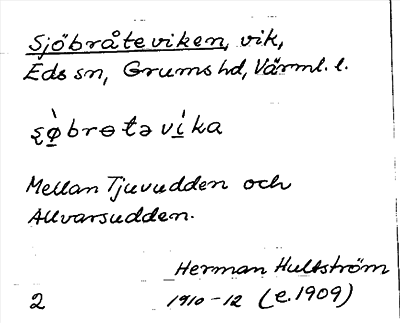 Sjöbråteviken, vik,
Eds sn, Grums hd, Värml. l.
ʂø̀brɵtəvìka
Mellan Tjuvudden och
Allvarsudden.
Herman Hultström
2 1910-12 (e. 1909)